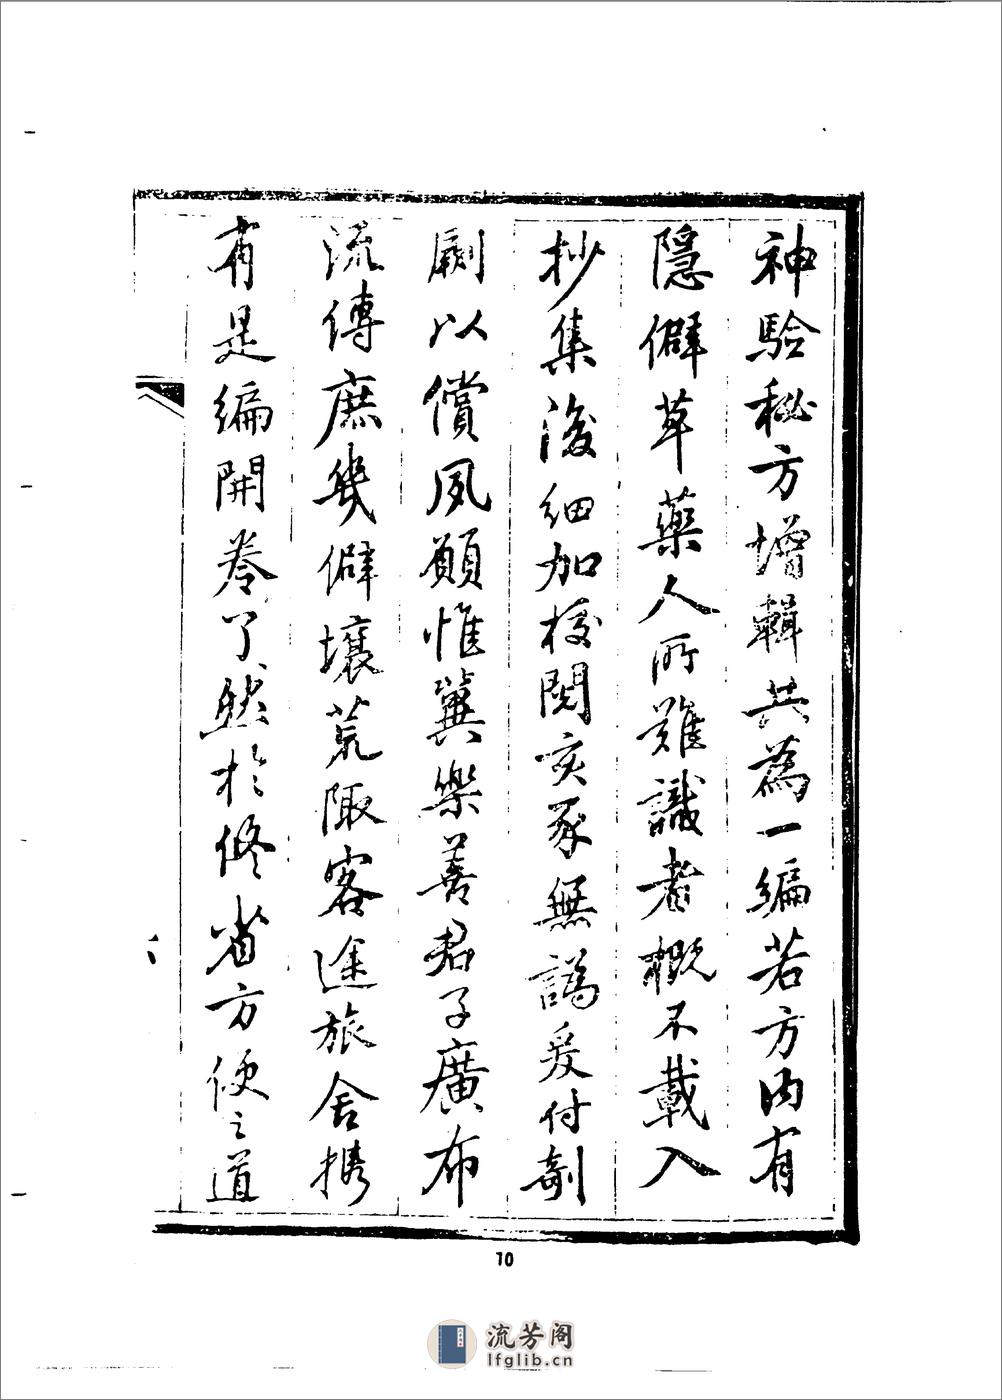 神驗秘方增輯共為一編若方内有
隱僻草藥人所難識者概不載入
抄集後細加校閱亥豕無譌爰付剞
劂以償夙願惟冀樂善君子廣布
流傳庶幾僻壤荒陬客途旅舍攜
有是編開卷了然於修省方便之道
10
流芳阁
lfglib.cn